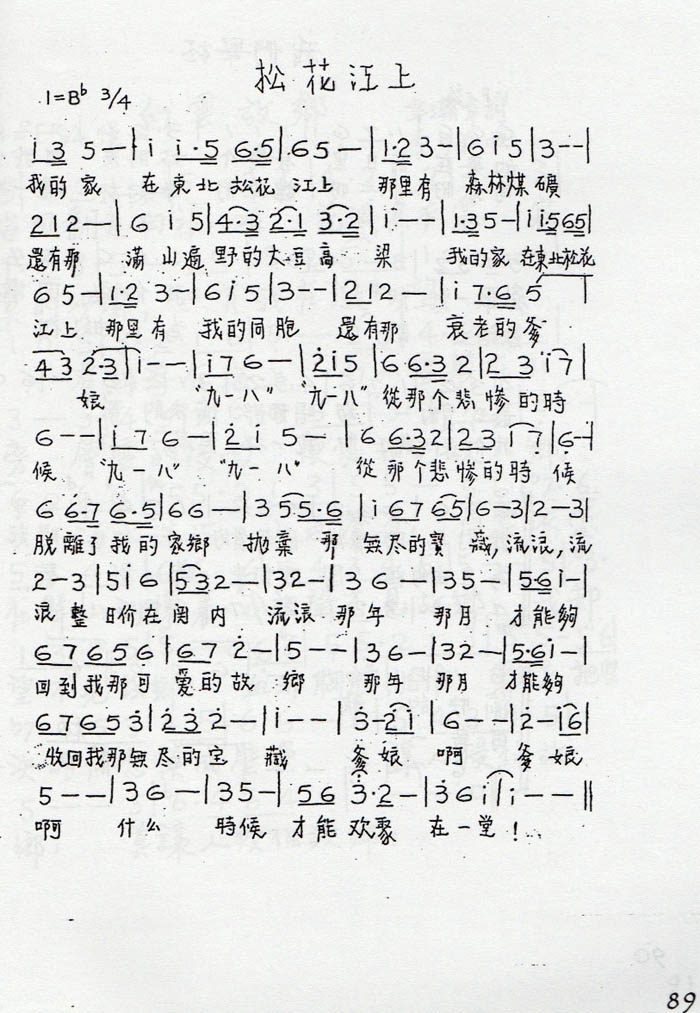 松花江上
1=B♭ 3/4
i 3 5 — | i i·5 6·5 | 6 5 — | 1·2 3 — | 6 i 5 | 3 — — |
我的家 在東北松花江上 那里有 森林煤礦
2 1 2 — — | 6 5 | 4·3 2·1 3·2 | i — — | 1·3 5 — | i i565 |
還有那 滿山遍野的大豆高粱 我的家在東北松花
6 5 — | 1·2 3 — | 6 i 5 | 3 — — | 2 1 2 — — | i 7·6 5
江上 那里有 我的同胞 還有那 衰老的爹
4 3 2·3 | i — — | i 7 6 — | 2 i 5 | 6 6·3 2 | 2 3 i 7 |
娘 "九一八" "九一八" 從那个悲慘的時
6 — — | i 7 6 — | 2 i 5 — | 6 6·3 2 | 2 3 1 7 | 6 — |
候 "九一八" "九一八" 從那个悲慘的時候
6 6·7 6·5 | 6 6 — | 3 5 5·6 | i 6 7 6 5 | 6 — 3 | 2 — 3 |
脫離了我的家鄉 拋棄那無尽的寳藏,流浪,流
2 — 3 | 5 i 6 | 5 3 2 — | 3 2 — | 3 6 — | 3 5 — | 5·6 i — |
浪整日价在関内 流浪 那年 那月 才能夠
6 7 6 5 6 | 6 7 2 — | 5 — — | 3 6 — | 3 2 — | 5·6 i — |
回到我那可愛的故鄉 那年 那月 才能夠
6 7 6 5 3 | 2 3 2 — | i — — | 3 — 2 i | 6 — — | 2 — i 6 |
收回我那無尽的宝藏 爹娘啊 爹娘
5 — — | 3 6 — | 3 5 — | 5 6 3·2 — | 3 6 i | i — — ‖
啊 什么 時候 才能欢聚 在一堂!
89